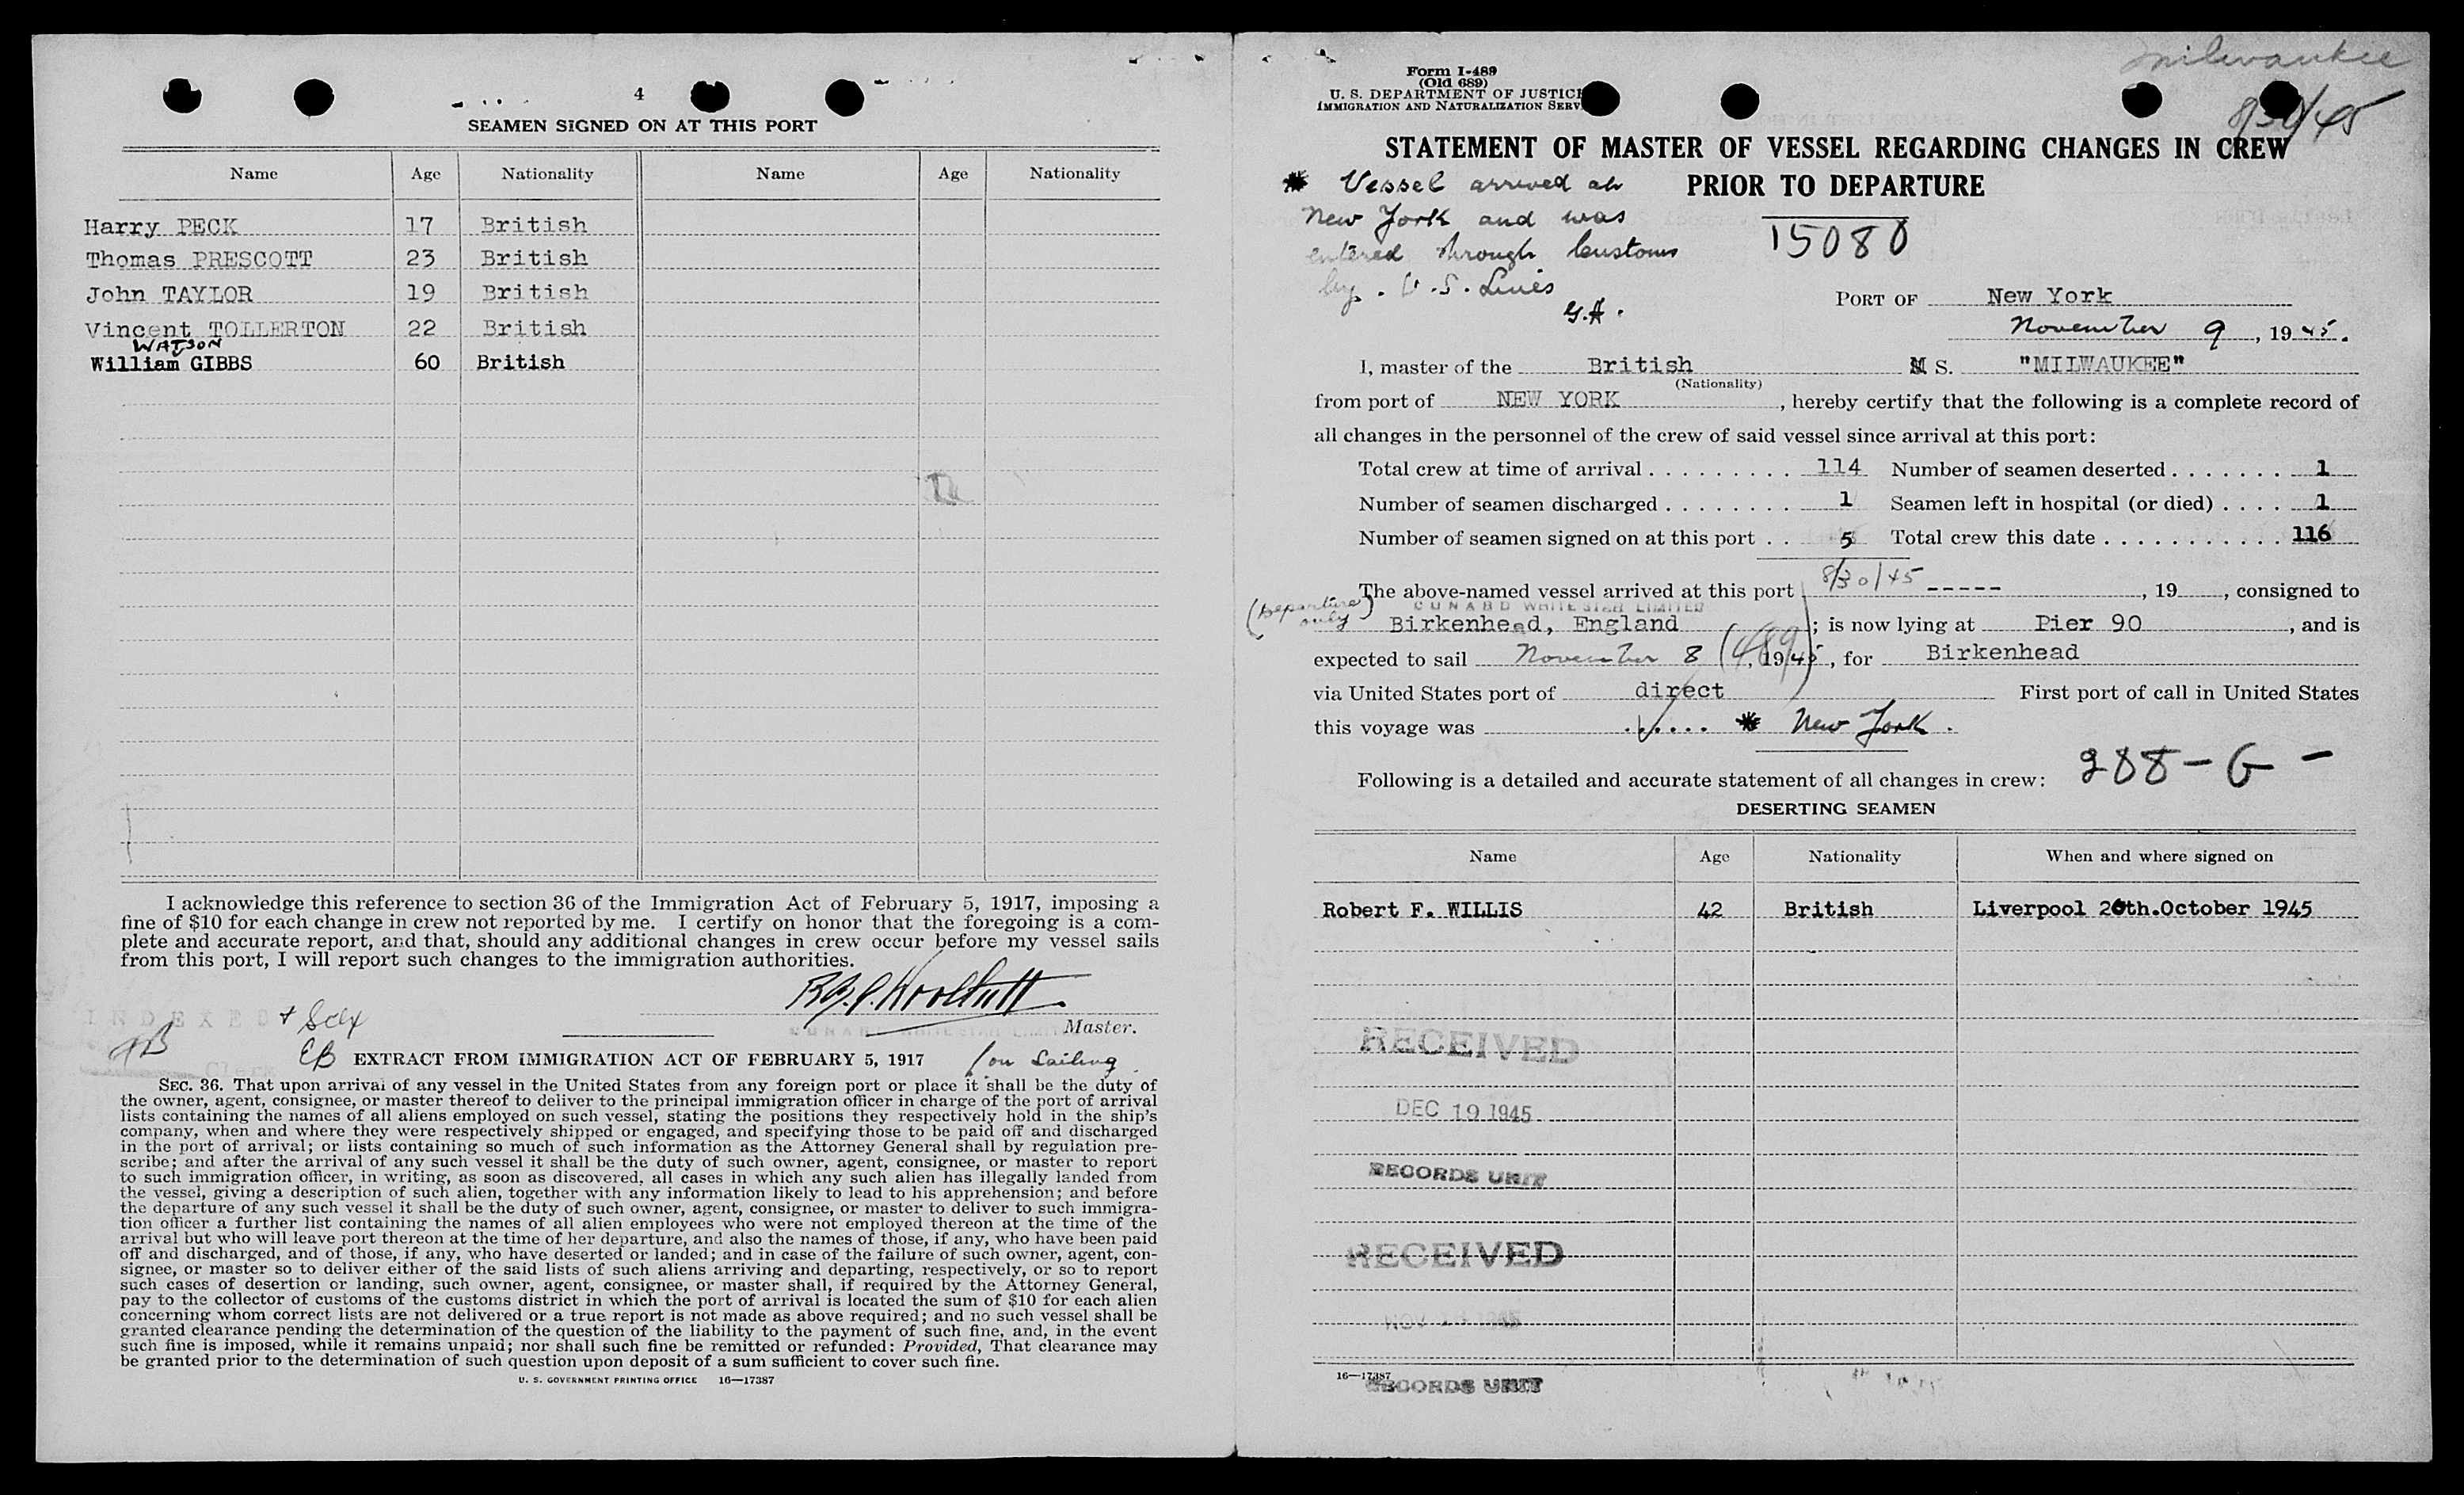 4
SEAMEN SIGNED ON AT THIS PORT
Name Age Nationality Name Age Nationality
Harry PECK 17 British
Thomas PRESCOTT 23 British
John TAYLOR 19 British
Vincent TOLLERTON 22 British
WATSON
William GIBBS 60 British
I acknowledge this reference to section 36 of the Immigration Act of February 5, 1917, imposing a
fine of $10 for each change in crew not reported by me. I certify on honor that the foregoing is a com-
plete and accurate report, and that, should any additional changes in crew occur before my vessel sails
from this port, I will report such changes to the immigration authorities.
INDEXED
CUNARD WHITE STAR LIMITED
Master.
Clerk
EB EXTRACT FROM IMMIGRATION ACT OF FEBRUARY 5, 1917 on Sailing
SEC. 36. That upon arrival of any vessel in the United States from any foreign port or place it shall be the duty of
the owner, agent, consignee, or master thereof to deliver to the principal immigration officer in charge of the port of arrival
lists containing the names of all aliens employed on such vessel, stating the positions they respectively hold in the ship's
company, when and where they were respectively shipped or engaged, and specifying those to be paid off and discharged
in the port of arrival; or lists containing so much of such information as the Attorney General shall by regulation pre-
scribe; and after the arrival of any such vessel it shall be the duty of such owner, agent, consignee, or master to report
to such immigration officer, in writing, as soon as discovered, all cases in which any such alien has illegally landed from
the vessel, giving a description of such alien, together with any information likely to lead to his apprehension; and before
the departure of any such vessel it shall be the duty of such owner, agent, consignee, or master to deliver to such immigra-
tion officer a further list containing the names of all alien employees who were not employed thereon at the time of the
arrival but who will leave port thereon at the time of her departure, and also the names of those, if any, who have been paid
off and discharged, and of those, if any, who have deserted or landed; and in case of the failure of such owner, agent, con-
signee, or master so to deliver either of the said lists of such aliens arriving and departing, respectively, or so to report
such cases of desertion or landing, such owner, agent, consignee, or master shall, if required by the Attorney General,
pay to the collector of customs of the customs district in which the port of arrival is located the sum of $10 for each alien
concerning whom correct lists are not delivered or a true report is not made as above required; and no such vessel shall be
granted clearance pending the determination of the question of the liability to the payment of such fine, and, in the event
such fine is imposed, while it remains unpaid; nor shall such fine be remitted or refunded: Provided, That clearance may
be granted prior to the determination of such question upon deposit of a sum sufficient to cover such fine.
U. S. GOVERNMENT PRINTING OFFICE 16—17387
Milwaukee
8/30/45
Form I-489
(Old 689)
U. S. DEPARTMENT OF JUSTICE
IMMIGRATION AND NATURALIZATION SERV
STATEMENT OF MASTER OF VESSEL REGARDING CHANGES IN CREW
PRIOR TO DEPARTURE
* Vessel arrived at
New York and was
entered through Customs
by. U.S. Lines
G.A.
15080
PORT OF New York
November 9, 1945.
I, master of the British M S. "MILWAUKEE"
(Nationality)
from port of NEW YORK, hereby certify that the following is a complete record of
all changes in the personnel of the crew of said vessel since arrival at this port:
Total crew at time of arrival . . . . . . . . . . 114 Number of seamen deserted . . . . . . . 1
Number of seamen discharged . . . . . . . . 1 Seamen left in hospital (or died) . . . . 1
Number of seamen signed on at this port . . 5 Total crew this date . . . . . . . . . . . . 116
The above-named vessel arrived at this port 8/30/45 -----, 19 , consigned to
(Departure only) CUNARD WHITE STAR LIMITED
Birkenhead, England ; is now lying at Pier 90, and is
expected to sail November 8 (489), 1945, for Birkenhead
via United States port of direct First port of call in United States
this voyage was ..... * New York.
Following is a detailed and accurate statement of all changes in crew: 288-G-
DESERTING SEAMEN
Name Age Nationality When and where signed on
Robert F. WILLIS 42 British Liverpool 26th.October 1945
RECEIVED
DEC 19 1945
RECORDS UNIT
RECEIVED
NOV 1945
16—17387
RECORDS UNIT